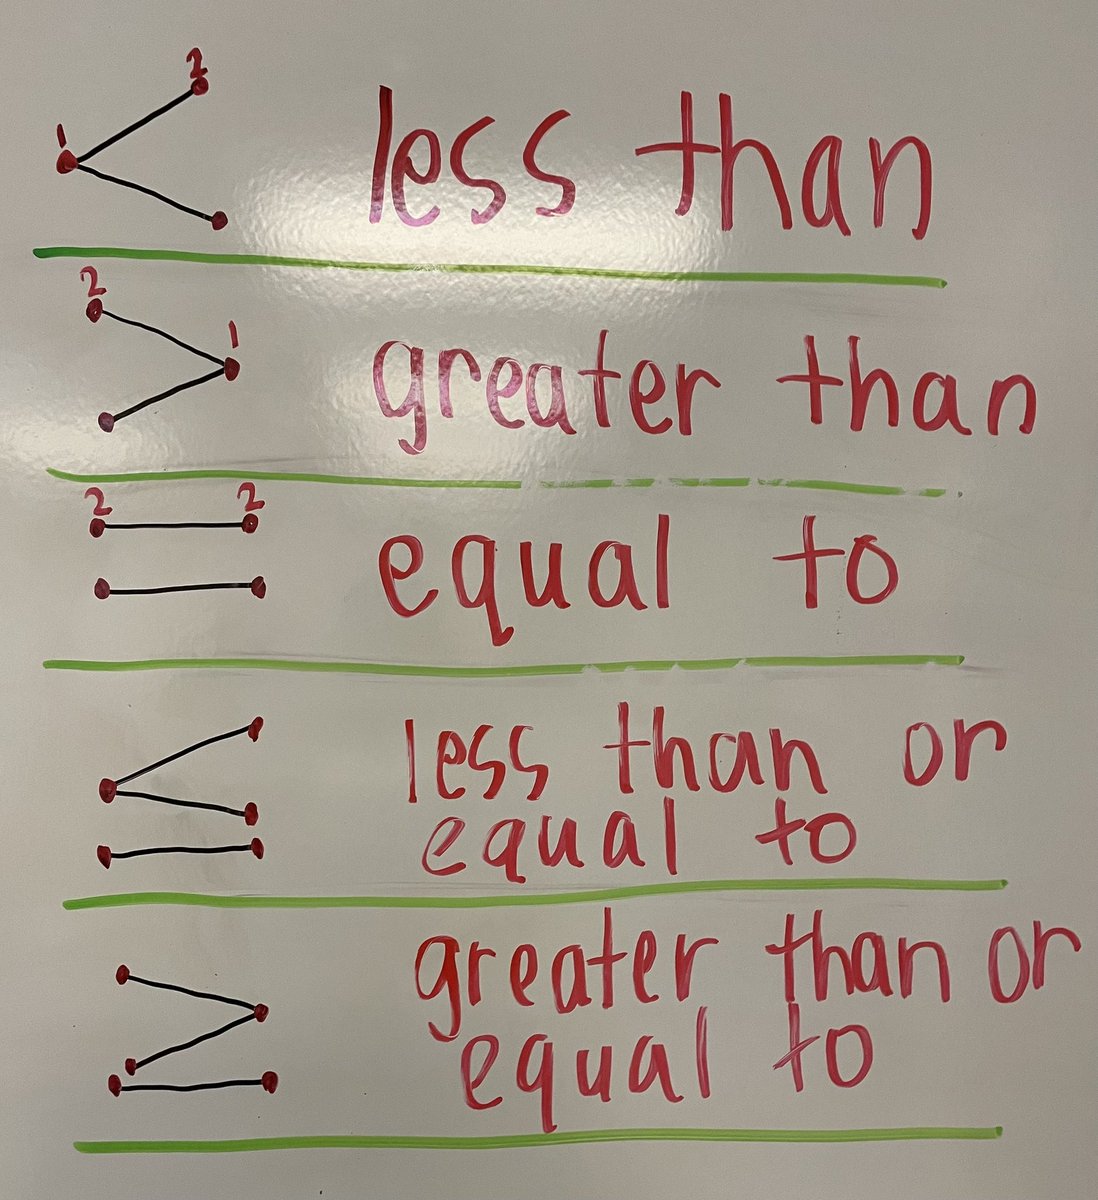 2
1
< less than
2
1
> greater than
2 2
= equal to
≤ less than or
equal to
≥ greater than or
equal to